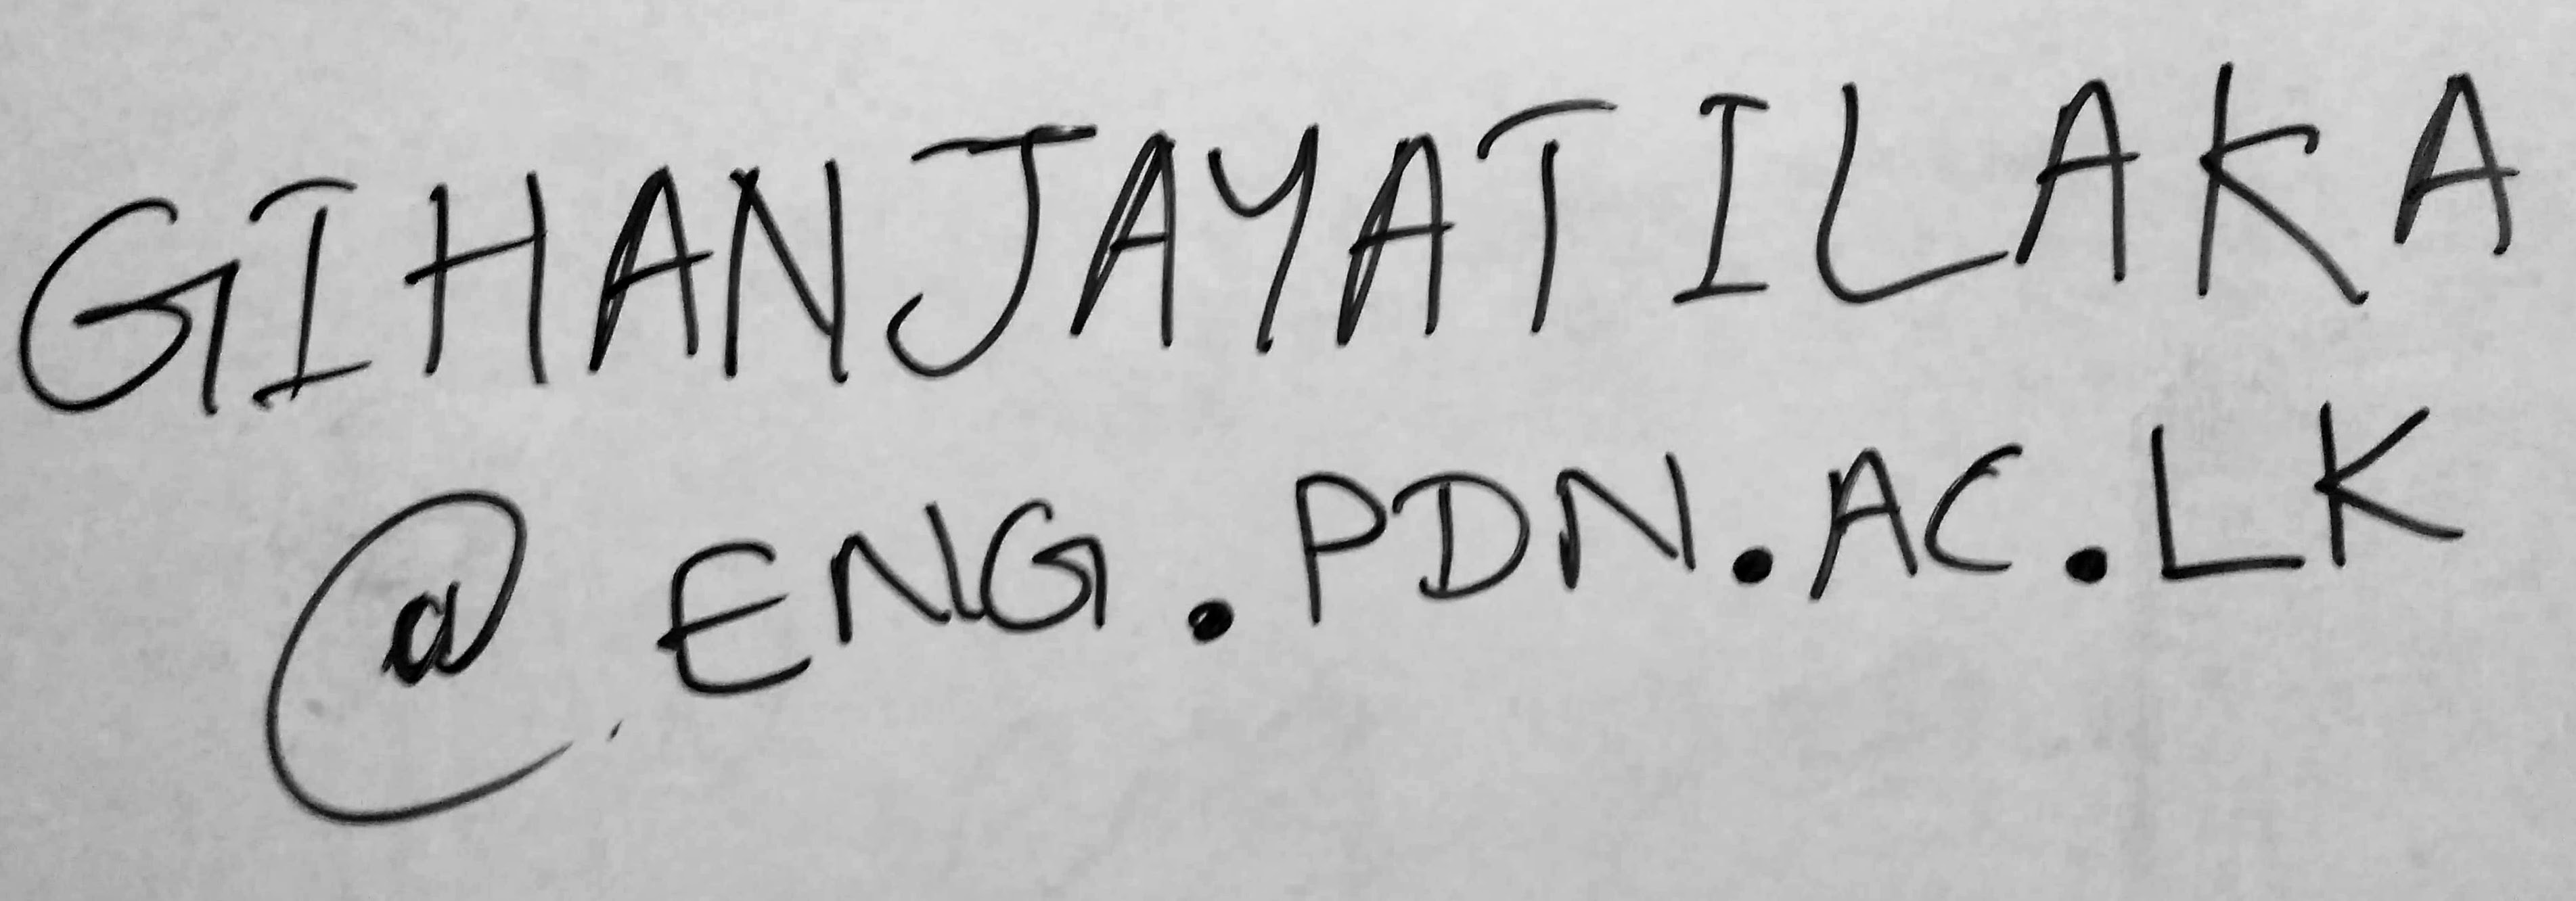 GIHANJAYATILAKA
@ENG.PDN.AC.LK